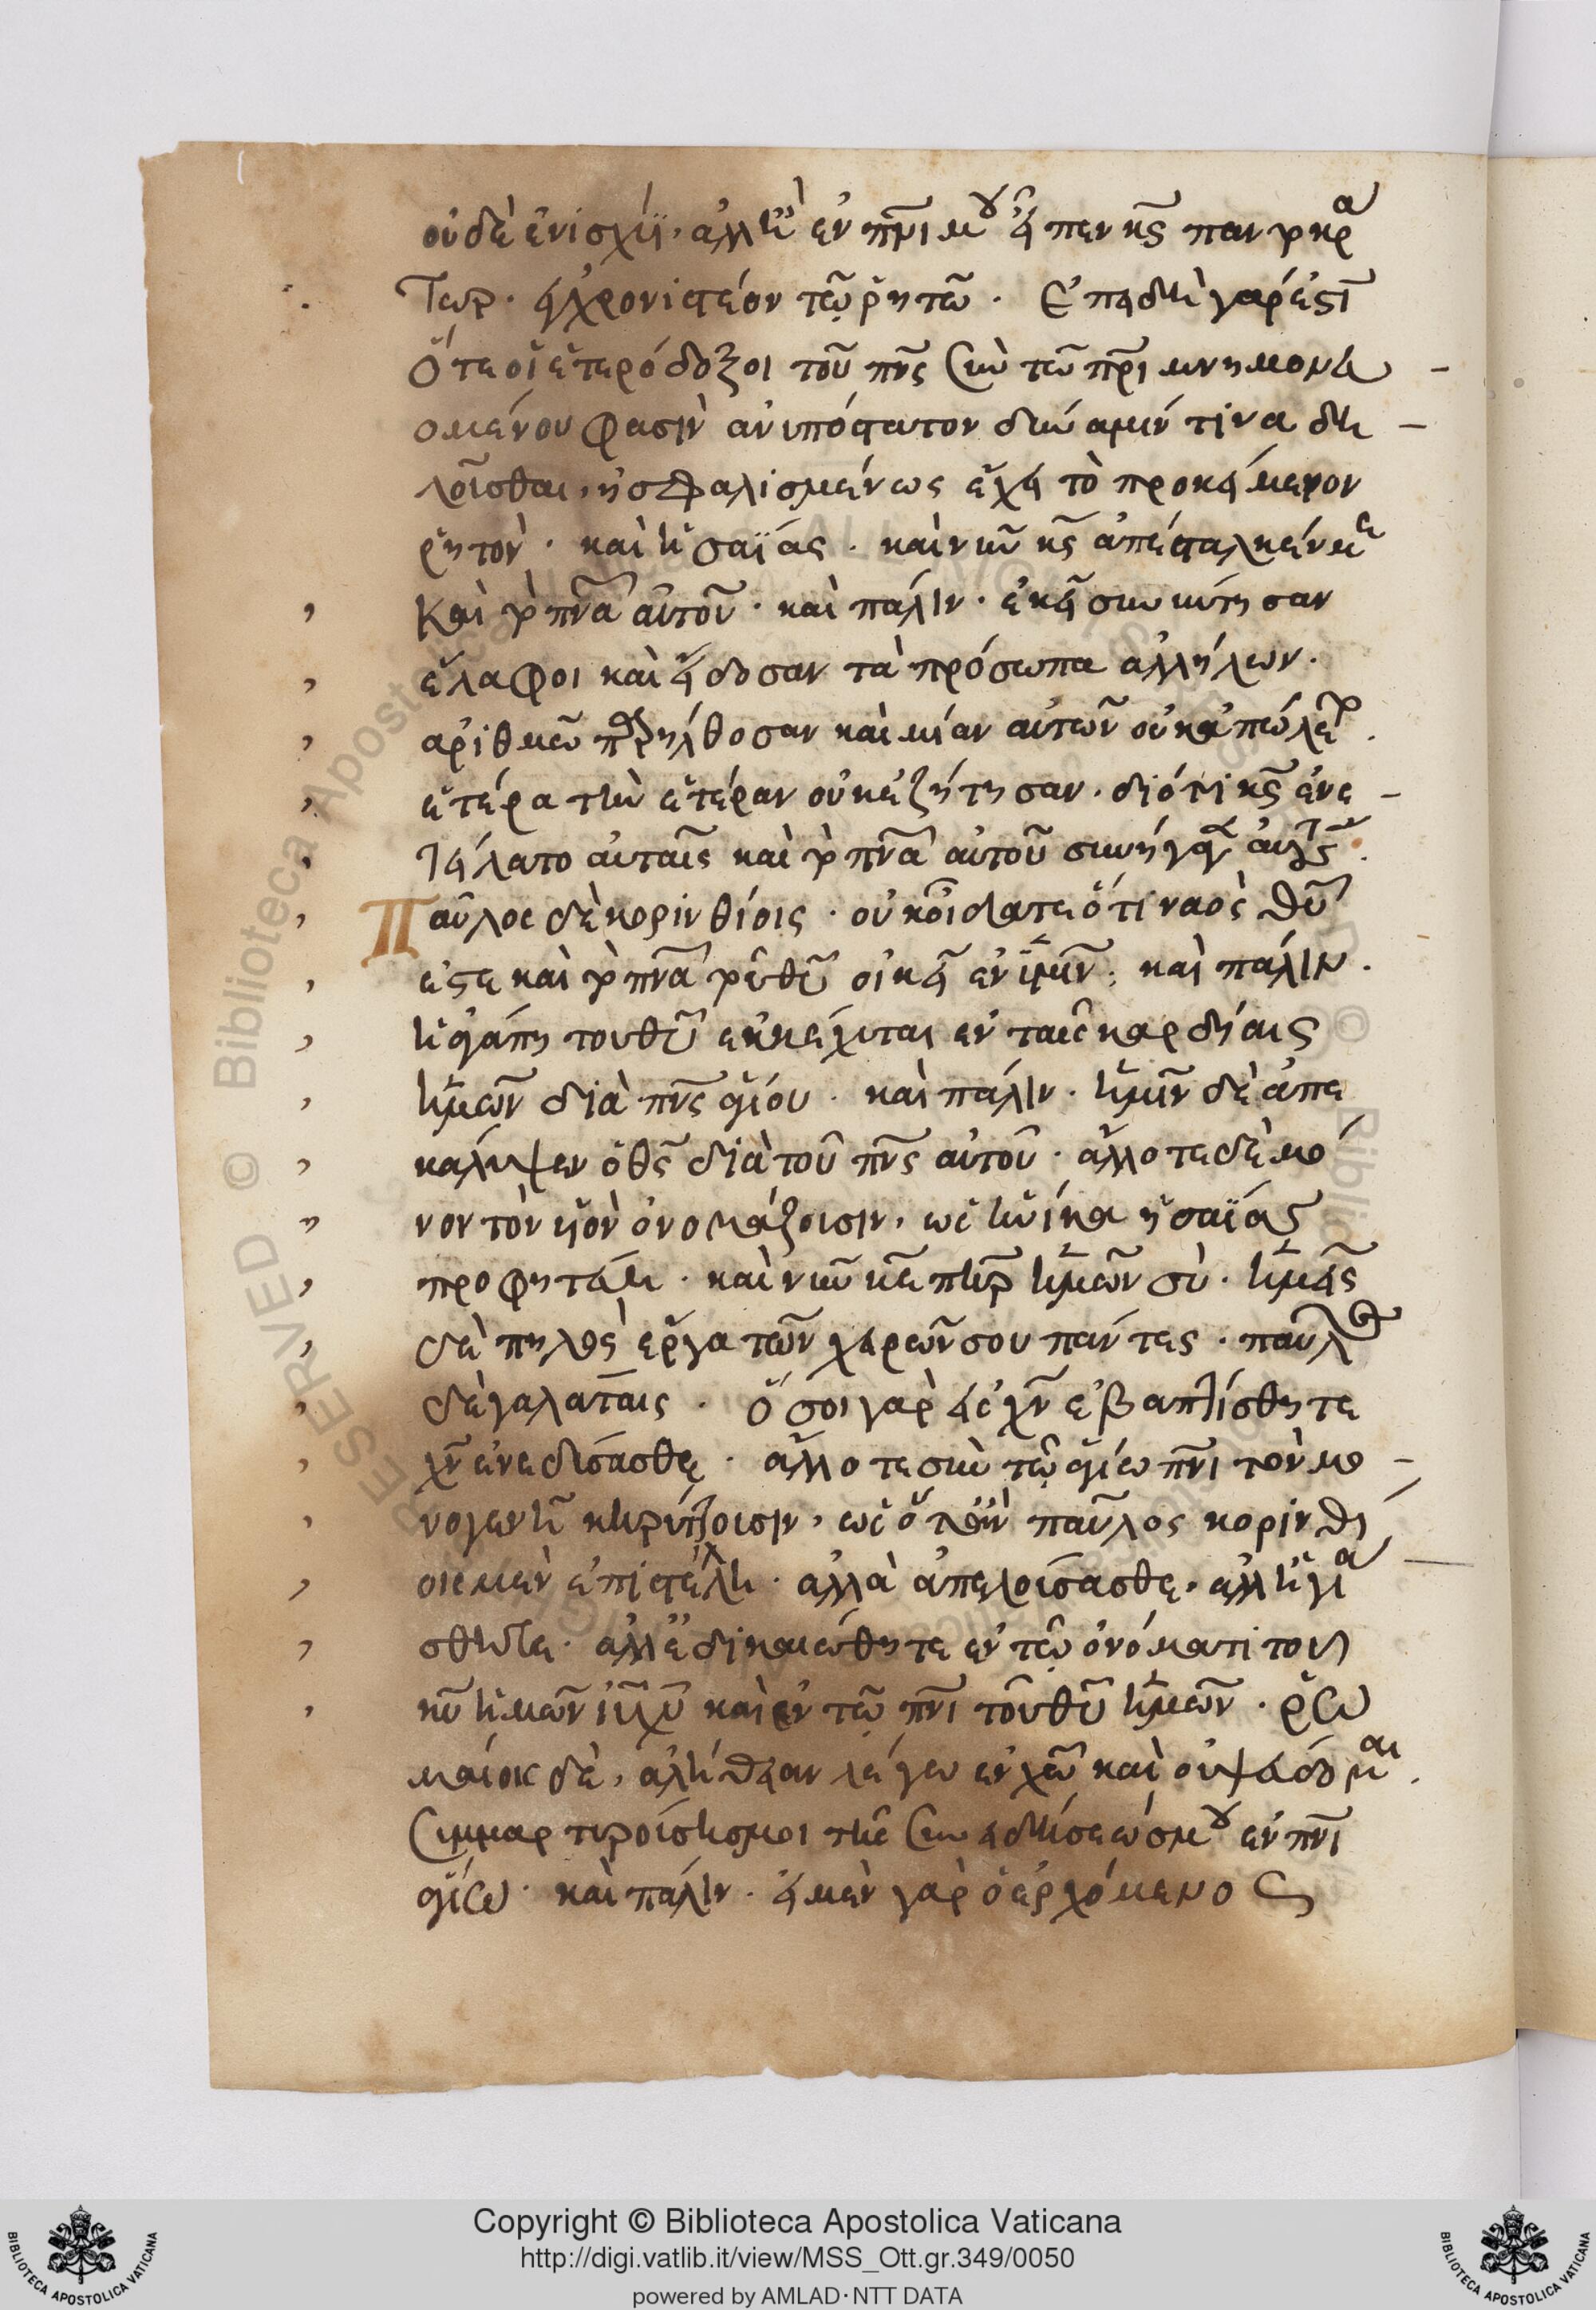 οὐδὲ ἐν ἰσχύϊ, ἀλλ' ἢ ἐν πνι μου εἶπεν κς παντοκρα
τωρ. ἐγχρονιστέον τῶ ῥητῶ. Ἐπειδὴ γάρ ἐστι
ὅτε οἱ ἑτερόδοξοι τοῦ πνς σὺν τῶ πρι μνημονευ
ομένου φασὶν ἀνυπόστατον δύναμίν τινα δη
λοῦσθαι, ἠσφαλισμένως ἔχει τὸ προκείμενον
ῥητὸν. καὶ ἡσαΐας. καὶ νῦν κς ἀπέσταλκέν με
καὶ τὸ πνα αὐτοῦ. καὶ πάλιν. ἐκεῖ συνήντησαν
ἔλαφοι καὶ εἴδοσαν τὰ πρόσωπα ἀλλήλων.
ἀριθμῶ παρήλθοσαν καὶ μίαν αὐτῶν οὐκ ἀπώλετο.
ἑτέρα τὴν ἑτέραν οὐκ ἐζήτησαν. διότι κς ἐνε
τείλατο αὐταῖς καὶ τὸ πνα αὐτοῦ συνήγαγεν αὐτάς.
Παῦλος δὲ κορινθίοις. οὐκ οἴδατε ὅτι ναὸς θυ
ἐστε καὶ τὸ πνα τοῦ θυ οἰκεῖ ἐν ὑμῖν; καὶ πάλιν.
ἡ ἀγάπη τοῦ θυ ἐκκέχυται ἐν ταῖς καρδίαις
ἡμῶν διὰ πνς ἁγίου. καὶ πάλιν. ἡμῖν δὲ ἀπε
κάλυψεν ὁ θς διὰ τοῦ πνς αὐτοῦ. ἄλλοτε δὲ μό
νον τὸν υἱὸν ὀνομάζουσιν, ὡς ἡνίκα ἡσαΐας
προφητεύει. καὶ νῦν κε πηρ ἡμῶν σὺ. ἡμεῖς
δὲ πηλὸς ἔργα τῶν χειρῶν σου πάντες. παῦλος
δὲ γαλάταις. Ὅσοι γὰρ εἰς χν ἐβαπτίσθητε
χν ἐνεδύσασθε. ἄλλοτε σὺν τῶ ἁγίω πνι τὸν μο
νογενῆ κηρύττουσιν, ὡς ὅταν παῦλος κορινθί
οις μὲν ἐπιστέλλη. ἀλλὰ ἀπελούσασθε, ἀλλ' ἡγιά
σθητε. ἀλλ' ἐδικαιώθητε ἐν τῶ ὀνόματι τοῦ
κυ ἡμῶν ιυ χυ καὶ ἐν τῶ πνι τοῦ θυ ἡμῶν. ῥω
μαίοις δὲ, ἀλήθειαν λέγω ἐν χω καὶ οὐ ψεύδομαι.
συμμαρτυρούσης μοι τῆς συνειδήσεώς μου ἐν πνι
ἁγίω. καὶ πάλιν. εἰ μὲν γὰρ ὁ ἐρχόμενος
Copyright © Biblioteca Apostolica Vaticana
http://digi.vatlib.it/view/MSS_Ott.gr.349/0050
powered by AMLAD·NTT DATA
BIBLIOTECA APOSTOLICA VATICANA
BIBLIOTECA APOSTOLICA VATICANA